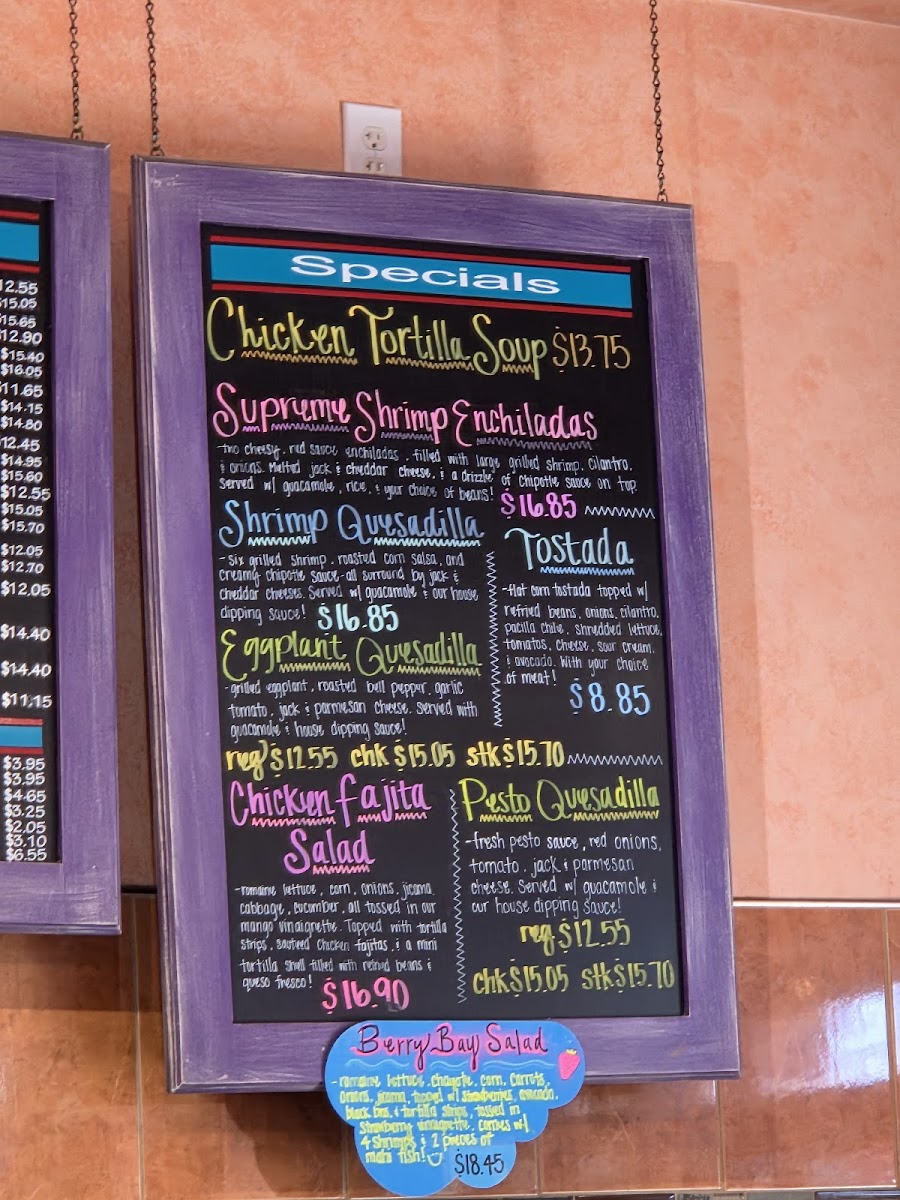 12.55
$15.05
$15.65
12.90
$15.40
$16.05
11.65
$14.15
$14.80
12.45
$14.95
$15.60
$12.55
$15.05
$15.70
$12.05
$12.70
$12.05
$14.40
$14.40
$11.15
$3.95
$3.95
$4.65
$3.25
$2.05
$3.10
$6.55
Specials
Chicken Tortilla Soup $13.75
Supreme Shrimp Enchiladas
-two cheesy, red sauce enchiladas, filled with large grilled shrimp, cilantro,
& onions. Melted jack & cheddar cheese, & a drizzle of chipotle sauce on top.
Served w/ guacamole, rice, & your choice of beans! $16.85
Shrimp Quesadilla
-six grilled shrimp, roasted corn salsa, and
creamy chipotle sauce-all surround by jack &
cheddar cheeses. Served w/ guacamole & our house
dipping sauce! $16.85
Tostada
-flat corn tostada topped w/
refried beans, onions, cilantro,
pacilla chile, shredded lettuce,
tomatos, cheese, sour cream,
& avocado. With your choice
of meat!
$8.85
Eggplant Quesadilla
-grilled eggplant, roasted bell pepper, garlic
tomato, jack & parmesan cheese. Served with
guacamole & house dipping sauce!
reg $12.55 chk $15.05 stk $15.70
Chicken Fajita
Salad
-romaine lettuce, corn, onions, jicama,
cabbage, cucumber, all tossed in our
mango vinaigrette. Topped with tortilla
strips, sauteed chicken fajitas, & a mini
tortilla shell filled with refried beans &
queso fresco! $16.90
Pesto Quesadilla
-fresh pesto sauce, red onions,
tomato, jack & parmesan
cheese. Served w/ guacamole &
our house dipping sauce!
reg $12.55
chk $15.05 stk $15.70
Berry Bay Salad
-romaine lettuce, chayote, corn, carrots,
onions, jicama, topped w/ strawberries, avocado,
black bns, & tortilla strips, tossed in
strawberry vinaigrette. Comes w/
4 shrimps & 2 pieces of
mahi fish! $18.45